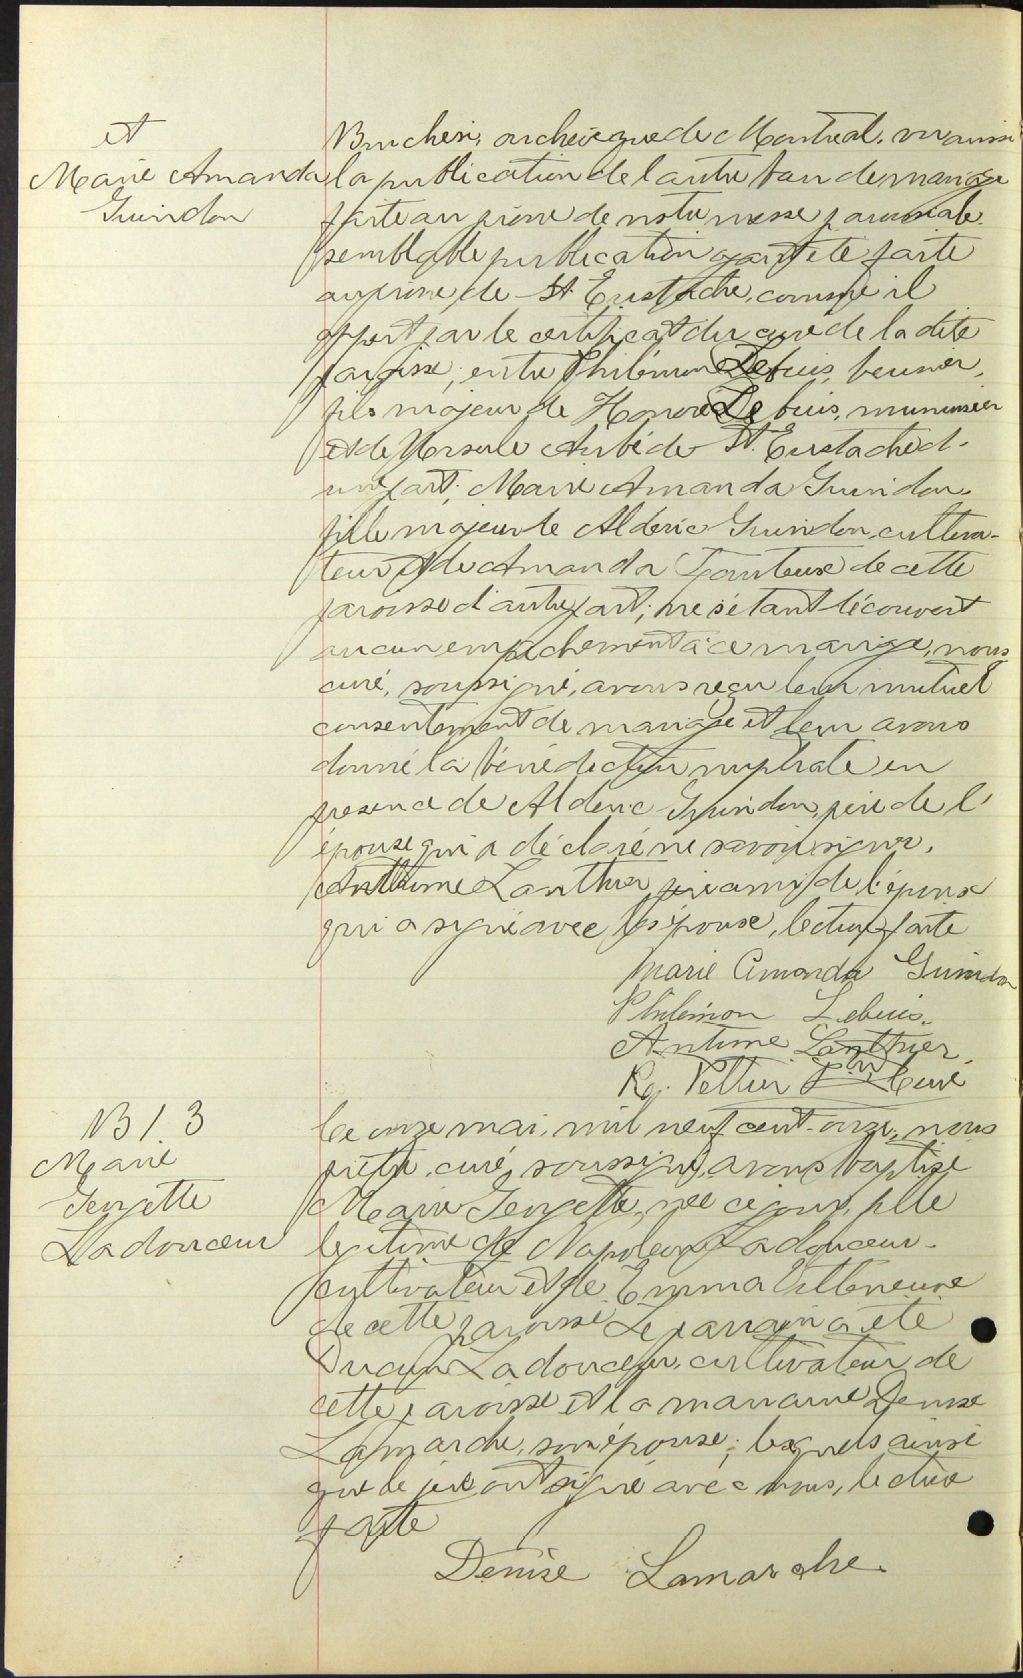 et
Marie Amanda
Guindon
Bruchési, archevêque de Montréal. vu aussi
la publication de l'autre ban de mariage
faite au prône de notre messe paroissiale.
semblable publication ayant été faite
au prône de St. Eustache, comme il
appert par le certificat du curé de la dite
paroisse, entre Philémon Lebuis,
fils majeur de Honoré Lebuis, menuisier
et de Ursule Aubé de St. Eustache d'
une part; Marie Amanda Guindon,
fille majeure de Alderic Guindon, cultiva-
teur et de Amanda Fauteux de cette
paroisse d'autre part; ne s'étant découvert
aucun empêchement à ce mariage, nous
curé, soussigné, avons reçu leur mutuel
consentement de mariage et leur avons
donné la bénédiction nuptiale en
présence de Alderic Guindon, père de l'
épouse qui a déclaré ne savoir signer.
Anthime Lanthier ami de l'époux
qui a signé avec les époux, lecture faite
Marie Amanda Guindon
Philémon Lebuis.
Antime Lanthier.
Ptre Curé
B 13
Marie
Georgette
Ladouceur
Ce onze mai, mil neuf cent-onze, nous
prêtre, curé, soussigné, avons baptisé
Marie Georgette, née ce jour, fille
légitime de Napoléon Ladouceur.
cultivateur et de Emma Villeneuve
de cette paroisse Le parrain a été
Ladouceur, cultivateur de
cette paroisse et la marraine Denise
Lamarche, son épouse; lesquels ainsi
que le père ont signé avec nous, lecture
faite
Denise Lamarche.